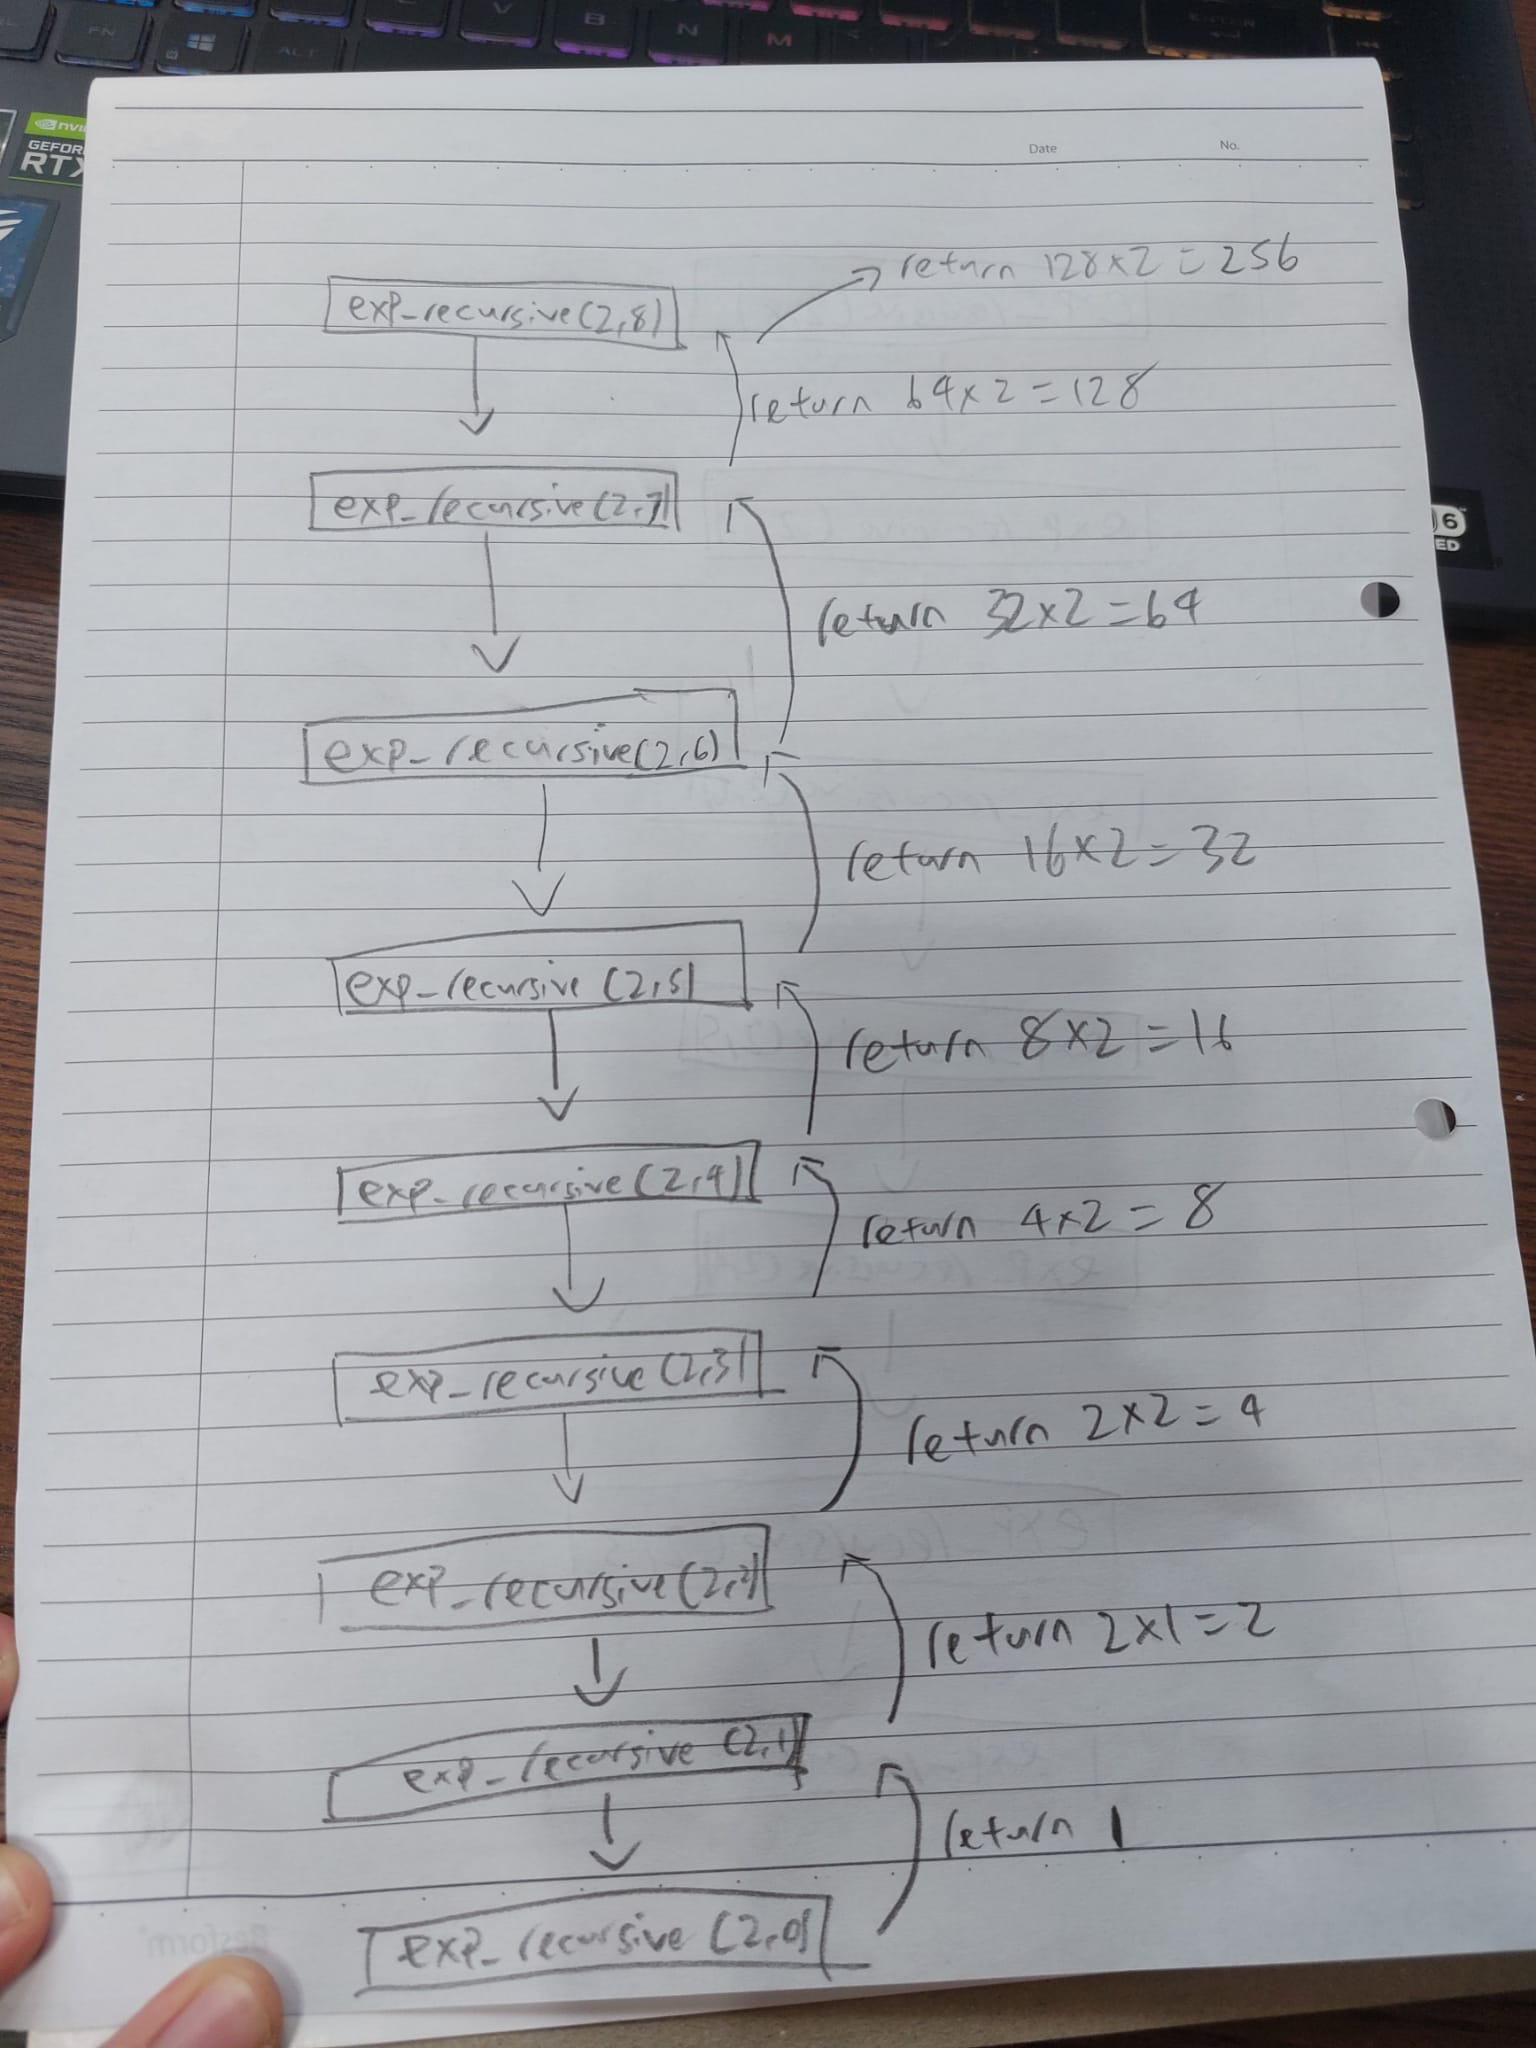 FN
ALT
V
B
N
M
ENTER
nvi
GEFOR
RTX
Date
No.
exp_recursive(2,8)
return 128×2=256
return 64×2=128
exp_recursive(2,7)
6
ED
return 32×2=64
exp_recursive(2,6)
return 16×2=32
exp_recursive(2,5)
return 8×2=16
exp_recursive(2,4)
return 4×2=8
exp_recursive(2,3)
return 2×2=4
exp_recursive(2,2)
return 2×1=2
exp_recursive(2,1)
return 1
exp_recursive(2,0)